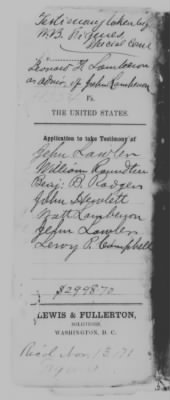 Testimony taken by
Special Com
as admr. of John Lamberson
Vs.
THE UNITED STATES.
Application to take Testimony of
John Lawler
William
Benj. B. Rodgers
John Hewlett
Lamberson
John Lawler
Leroy P. Campbell
$2998 70
LEWIS & FULLERTON,
SOLICITORS,
WASHINGTON, D. C.
Rec'd Nov. 13,